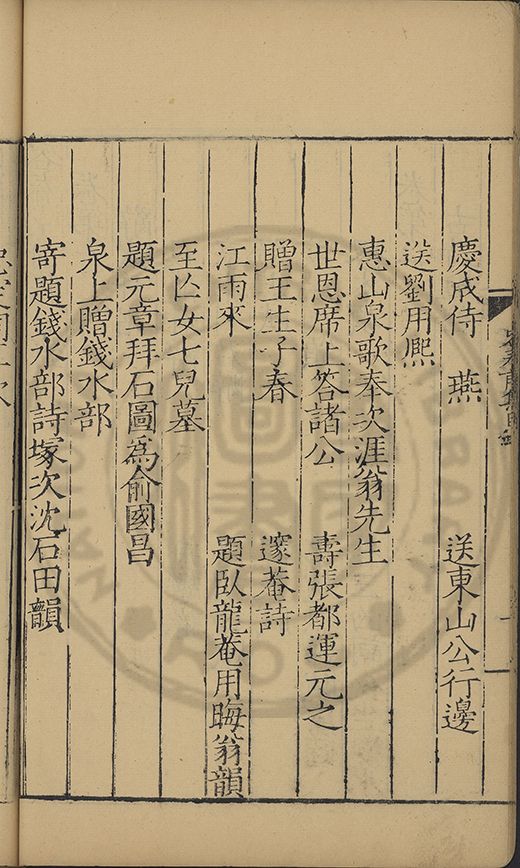 慶成侍燕 送東山公行邊
送劉用熈
惠山泉歌奉次涯翁先生
世恩席上答諸公 壽張都運元之
贈王生子春 邃菴詩
江雨來 題臥龍菴用晦翁韻
至亾女七兒墓
題元章拜石圖為俞國昌
泉上贈錢水部
寄題錢水部詩塚次沈石田韻